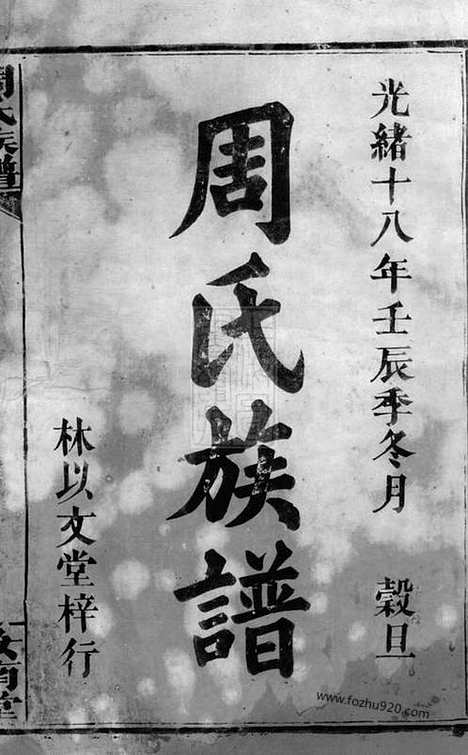 光緒十八年壬辰季冬月 穀旦
周氏族譜
林以文堂梓行
周氏族譜
汝南堂
www.fozhu920.com